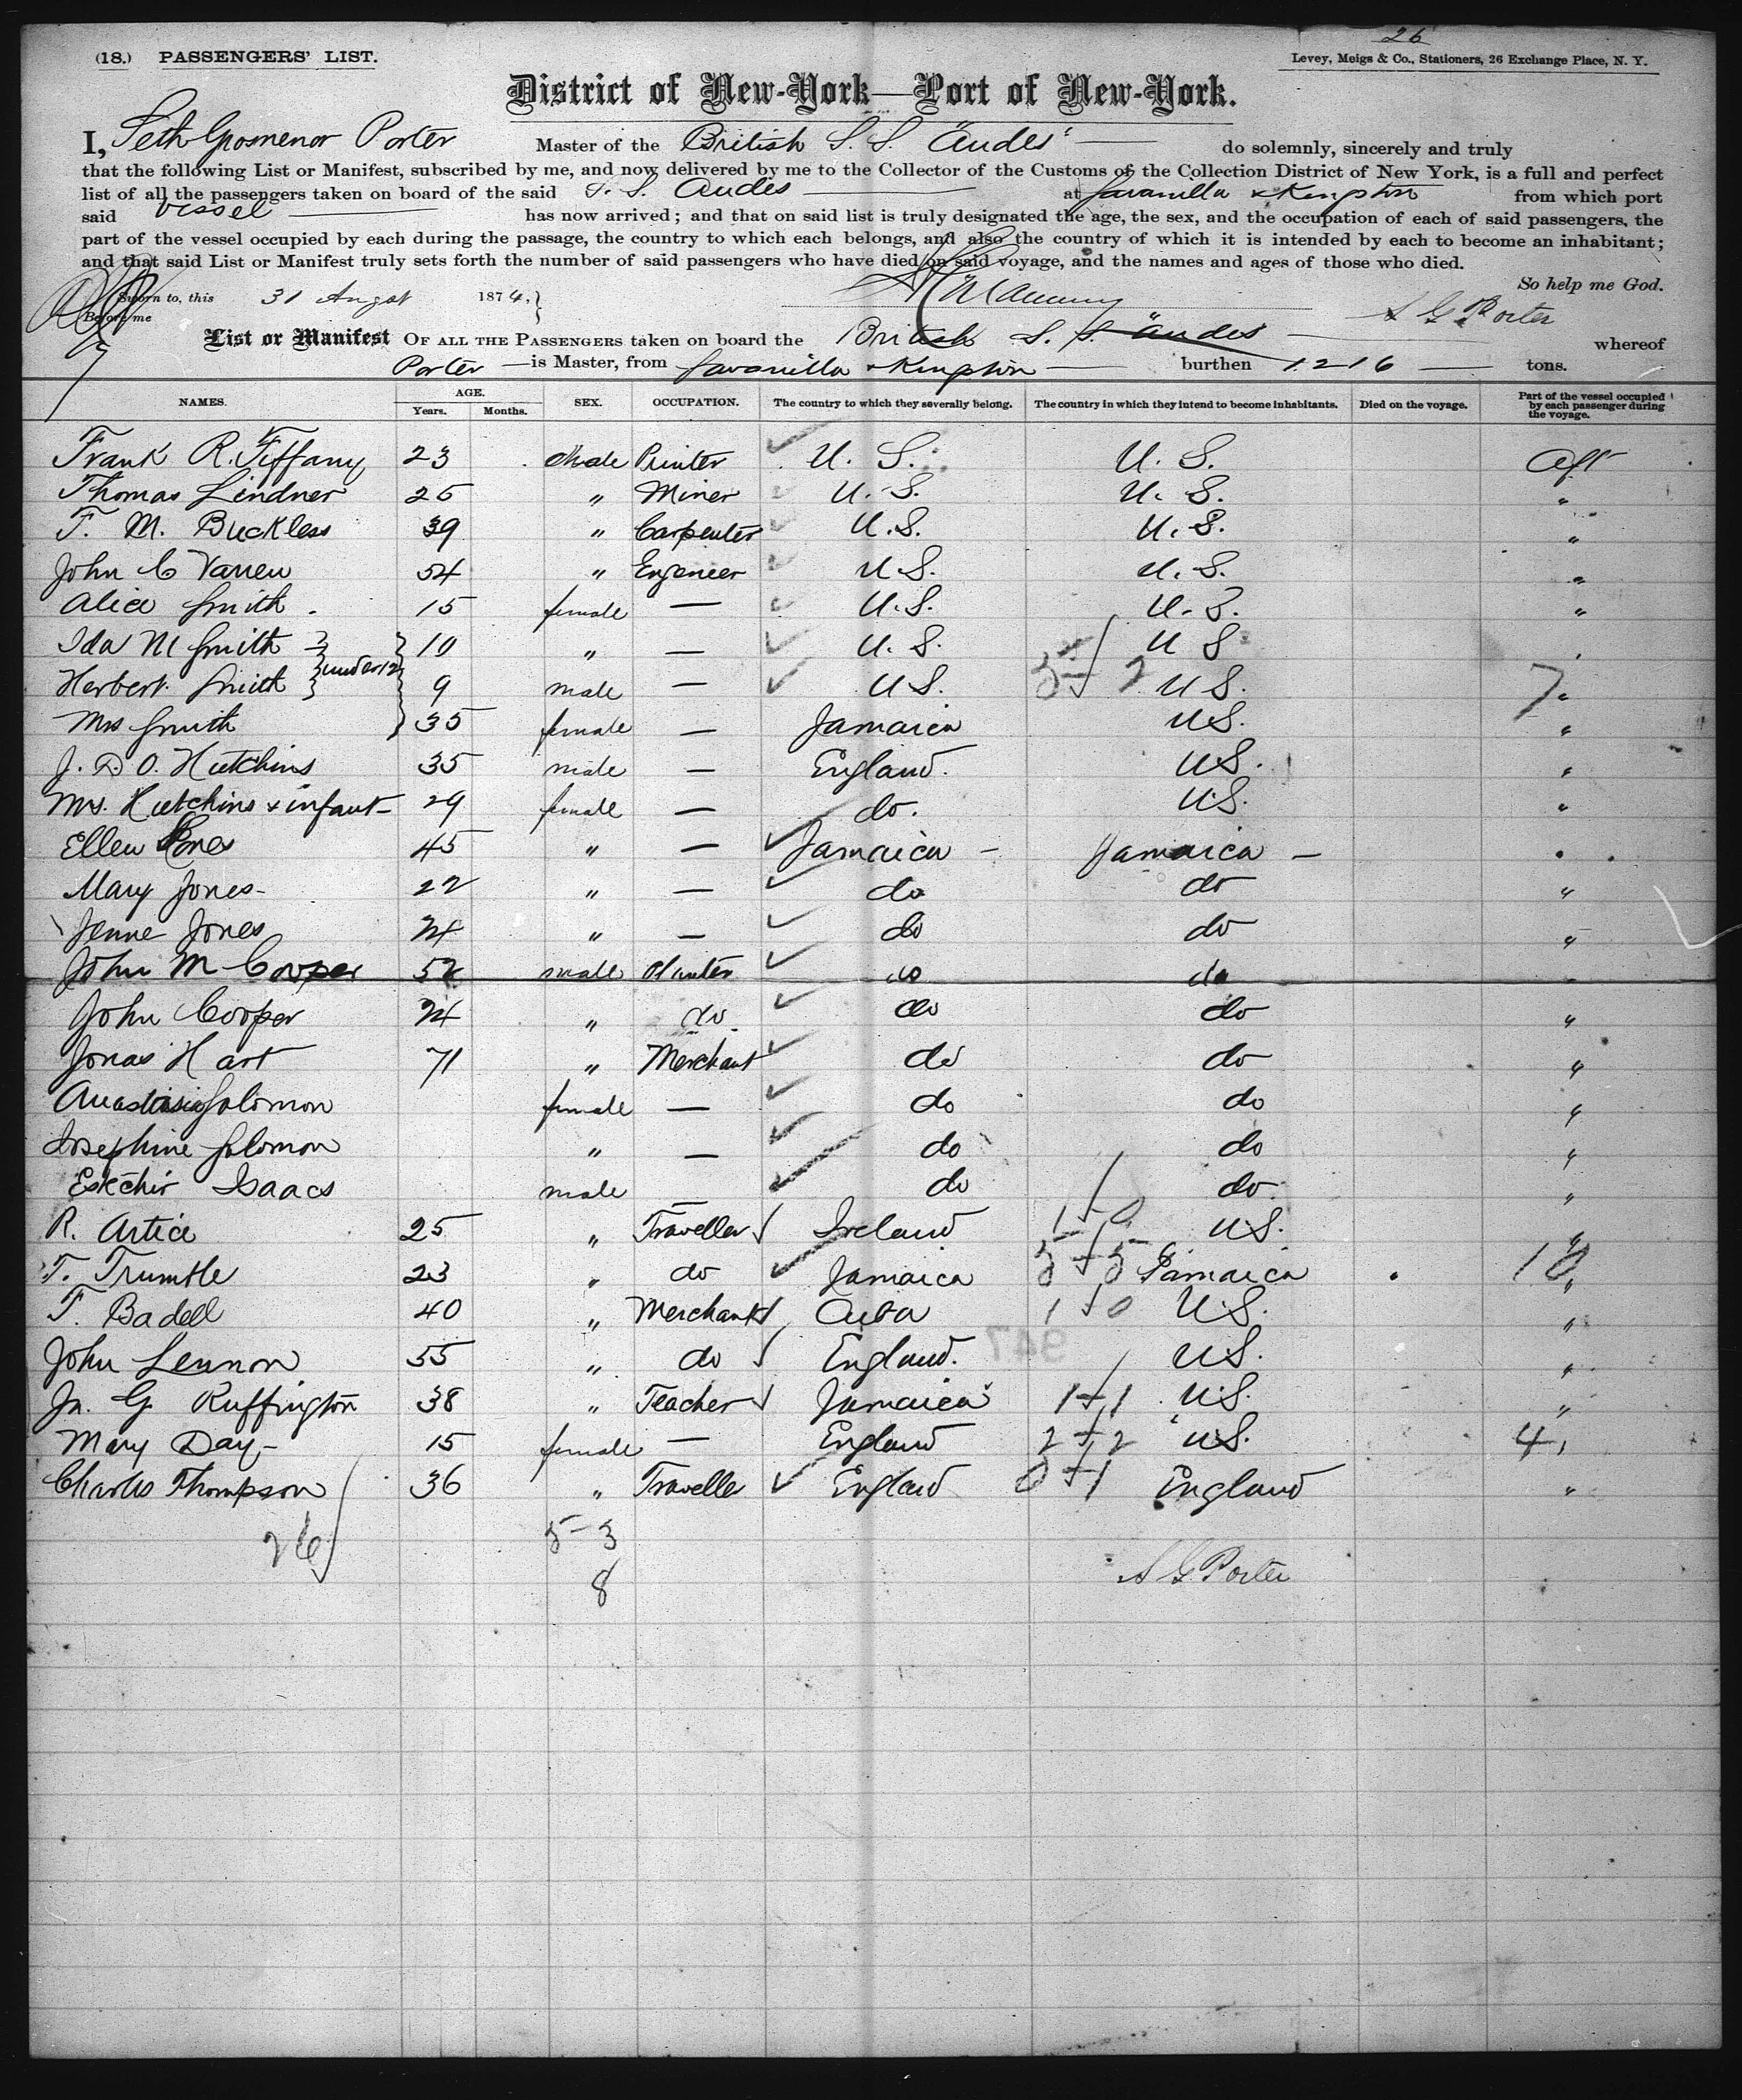 26
(18.) PASSENGERS' LIST. Levey, Meigs & Co., Stationers, 26 Exchange Place, N. Y.
District of New-York—Port of New-York.
I, Seth Grosvenor Porter Master of the British S. S. "Andes" do solemnly, sincerely and truly
that the following List or Manifest, subscribed by me, and now delivered by me to the Collector of the Customs of the Collection District of New York, is a full and perfect
list of all the passengers taken on board of the said S. S. Andes at Savanilla & Kingston from which port
said vessel has now arrived; and that on said list is truly designated the age, the sex, and the occupation of each of said passengers, the
part of the vessel occupied by each during the passage, the country to which each belongs, and also the country of which it is intended by each to become an inhabitant;
and that said List or Manifest truly sets forth the number of said passengers who have died on said voyage, and the names and ages of those who died.
So help me God.
Sworn to, this 31 August 1874,
Before me S G Porter
List or Manifest OF ALL THE PASSENGERS taken on board the British S. S. "Andes whereof
Porter is Master, from Savanilla & Kingston burthen 1216 tons.
NAMES. AGE. Years. Months. SEX. OCCUPATION. The country to which they severally belong. The country in which they intend to become inhabitants. Died on the voyage. Part of the vessel occupied by each passenger during the voyage.
Frank R. Tiffany 23 Male Printer U. S. U. S. Aft
Thomas Lindner 25 " Miner U. S. U. S. "
F. M. Buckless 39 " Carpenter U.S. U.S. "
John C Varren 54 " Engeneer U S. U. S. "
Alice Smith 15 female — U.S. U.S. "
Ida M Smith } under 12 10 " — U. S. U S "
Herbert Smith 9 male — U S. U S. "
Mrs Smith 35 female — Jamaica U S. "
J. D. O. Hutchins 35 male — England. U S. "
Mrs. Hutchins & infant 29 female — do. U.S. "
Ellen Jones 45 " — Jamaica — Jamaica — "
Mary Jones 22 " — do do "
Jenne Jones 24 " — do do "
John M Cooper 52 male Planter do do "
John Cooper 24 " do do do "
Jonas Hart 71 " Merchant do do "
Anastasia Solomon female — do do "
Josephine Solomon " — do do "
Isaacs male — do do "
R. Artice 25 " Traveller Ireland U.S. "
T. Trumble 23 " do Jamaica Jamaica 10 "
F. Badell 40 " Merchant Cuba U.S. "
John Lennon 55 " do England. U.S. "
Jn. G. Ruffington 38 " Teacher Jamaica U.S. "
Mary Day 15 female — England U.S. 4
Charles Thompson 36 " Travelle England England "
26 5-3
8 S G Porter